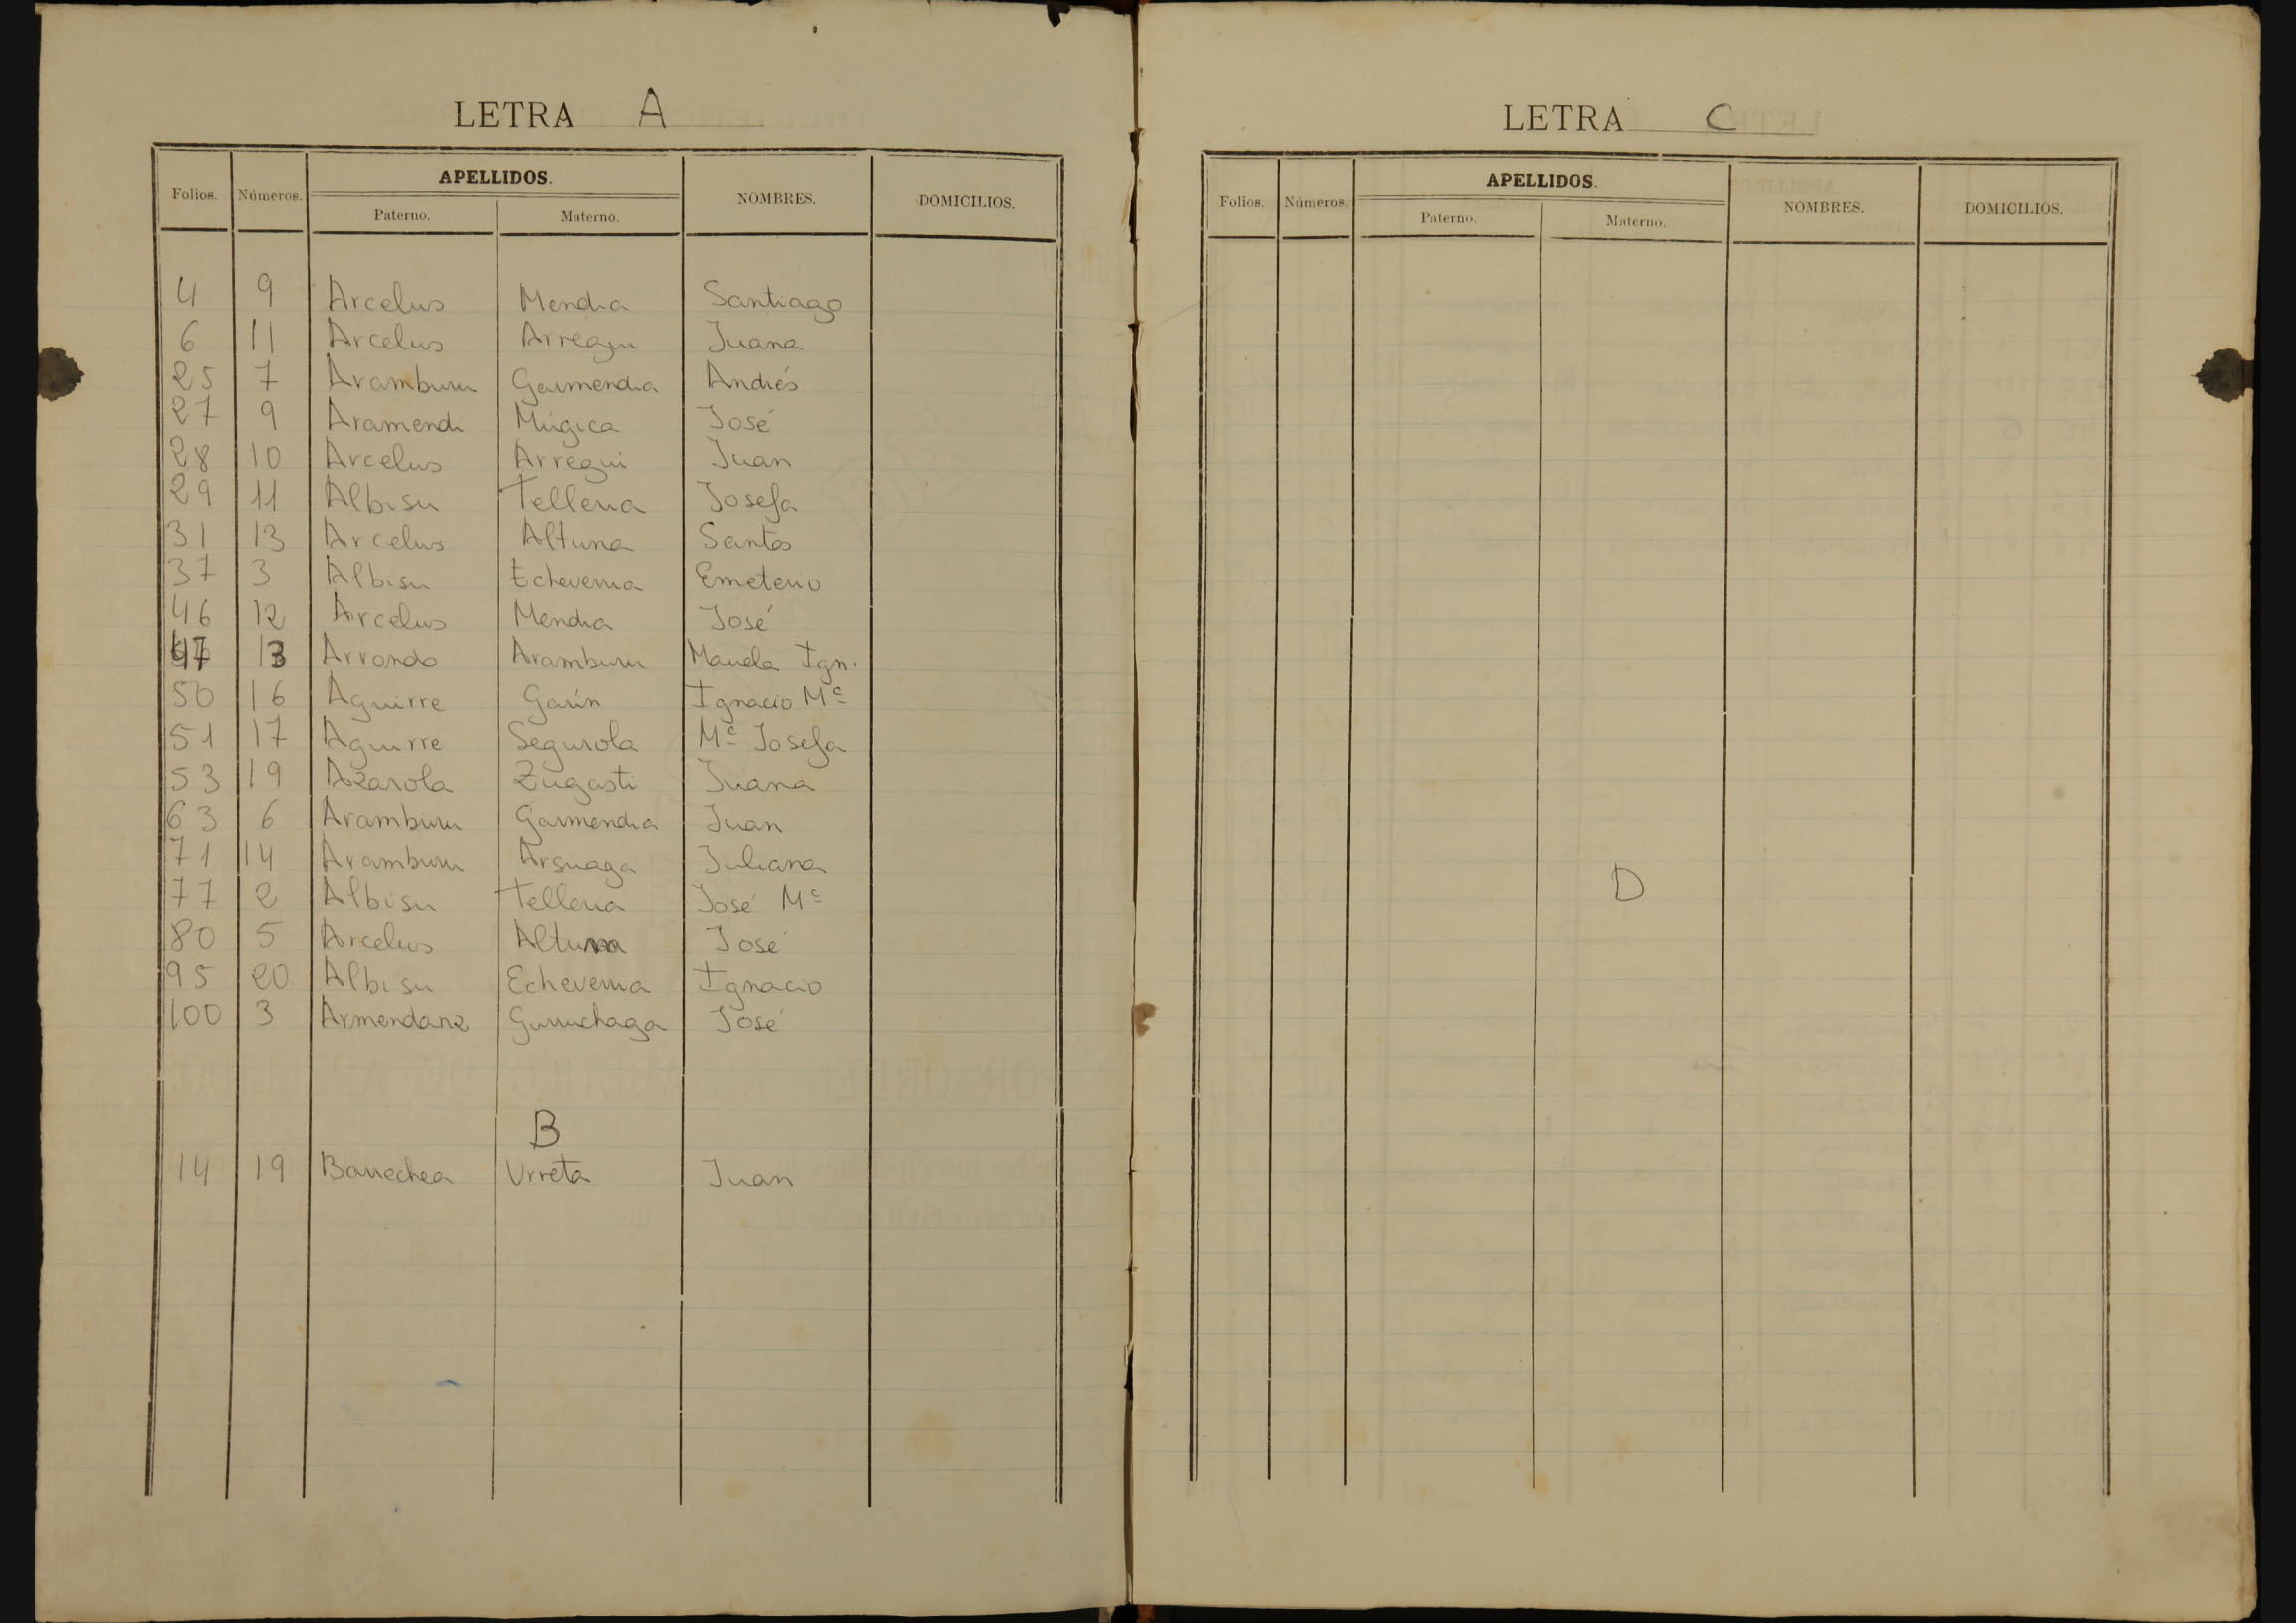 LETRA A
Folios. Números. APELLIDOS. NOMBRES. DOMICILIOS.
Paterno. Materno.
4 9 Arcelus Mendia Santiago
6 11 Arcelus Arregui Juana
25 7 Aramburu Garmendia Andrés
27 9 Aramendi Múgica José
28 10 Arcelus Arregui Juan
29 11 Albisu Telleria Josefa
31 13 Arcelus Altuna Santos
37 3 Albisu Echeverria Emeterio
46 12 Arcelus Mendia José
47 13 Arrondo Aramburu Manela Ign.
50 16 Aguirre Garín Ignacio Mª
51 17 Aguirre Segurola Mª Josefa
53 19 Azarola Zugasti Juana
63 6 Aramburu Garmendia Juan
71 14 Aramburu Arsuaga Juliana
77 2 Albisu Telleria José Mª
80 5 Arcelus Altuna José
95 20 Albisu Echeverria Ignacio
100 3 Armendariz Guruchaga José
B
14 19 Barrechea Urreta Juan
LETRA C
Folios. Números. APELLIDOS. NOMBRES. DOMICILIOS.
Paterno. Materno.
D